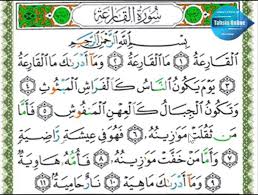 Tahsin Online
سُورَةُ القَارِعَةِ
بِسْمِ اللَّهِ الرَّحْمَٰنِ الرَّحِيمِ
الْقَارِعَةُ ١ مَا الْقَارِعَةُ ٢ وَمَا أَدْرَىٰكَ مَا الْقَارِعَةُ
٣ يَوْمَ يَكُونُ النَّاسُ كَالْفَرَاشِ الْمَبْثُوثِ ٤
وَتَكُونُ الْجِبَالُ كَالْعِهْنِ الْمَنْفُوشِ ٥ فَأَمَّا
مَن ثَقُلَتْ مَوَٰزِينُهُ ٦ فَهُوَ فِى عِيشَةٍ رَّاضِيَةٍ
٧ وَأَمَّا مَنْ خَفَّتْ مَوَٰزِينُهُ ٨ فَأُمُّهُ هَاوِيَةٌ
٩ وَمَا أَدْرَىٰكَ مَا هِيَهْ ١٠ نَارٌ حَامِيَةٌ ١١